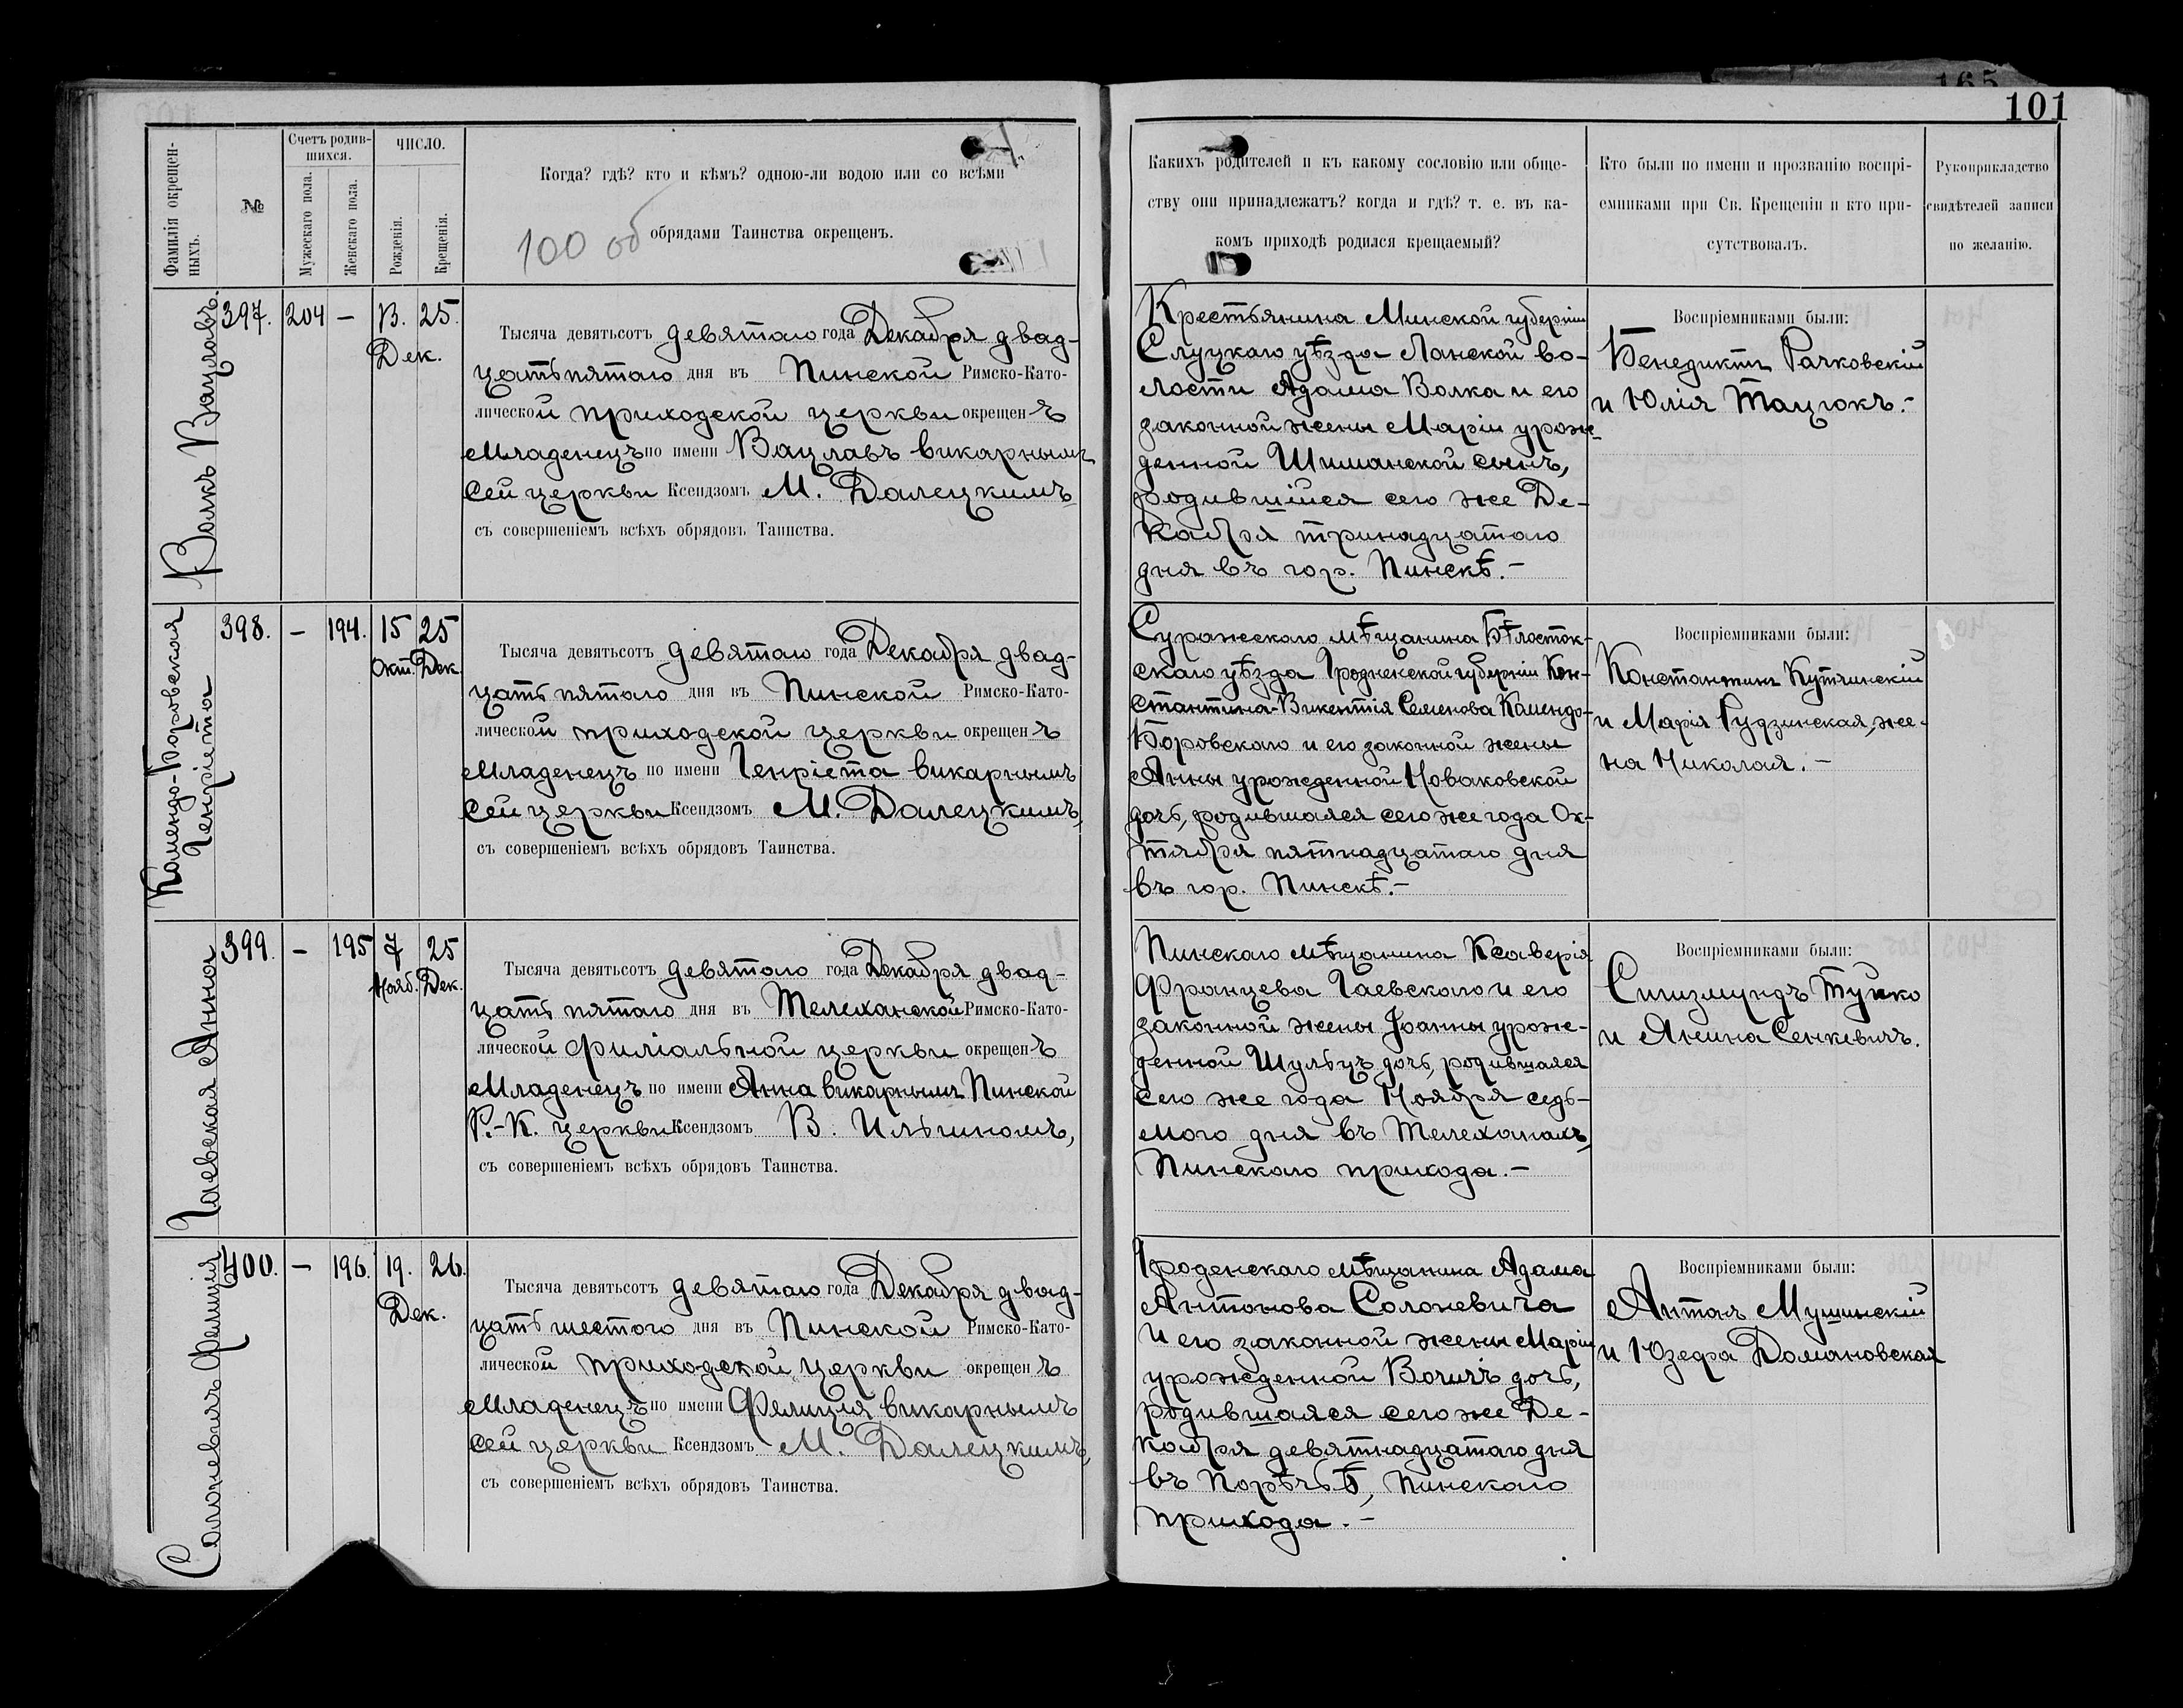 165
101
Фамилія окрещен-
ныхъ.
№
Счетъ родив-
шихся.
Мужескаго пола.
Женскаго пола.
ЧИСЛО.
Рожденія.
Крещенія.
Когда? гдѣ? кто и кѣмъ? одною-ли водою или со всѣми
обрядами Таинства окрещенъ.
100 об
Какихъ родителей и къ какому сословію или обще-
ству они принадлежатъ? когда и гдѣ? т. е. въ ка-
комъ приходѣ родился крещаемый?
Кто были по имени и прозванію воспрі-
емниками при Св. Крещеніи и кто при-
сутствовалъ.
Рукоприкладство
свидѣтелей записи
по желанію.
Волкъ Вацлавъ.
397. 204 – 13. 25.
Дек.
Тысяча девятьсотъ девятаго года Декабря двад-
цать пятаго дня въ Пинской Римско-Като-
лической приходской церкви окрещенъ
младенецъ по имени Вацлавъ викарнымъ
сей церкви Ксендзомъ М. Далецкимъ
съ совершеніемъ всѣхъ обрядовъ Таинства.
Крестьянина Минской губерніи
Слуцкаго уѣзда Ланской во-
лости Адама Волка и его
законной жены Маріи урож-
денной Шиманской сынъ,
родившійся сего же Де-
кабря тринадцатаго
дня въ гор. Пинскѣ.–
Воспріемниками были:
Бенедиктъ Рачковскій
и Юлія Тацюкъ.–
Комендо-Боровская
Генріета
398. – 194. 15 25
Окт. Дек.
Тысяча девятьсотъ девятаго года Декабря двад-
цать пятаго дня въ Пинской Римско-Като-
лической приходской церкви окрещенъ
младенецъ по имени Генріета викарнымъ
сей церкви Ксендзомъ М. Далецкимъ,
съ совершеніемъ всѣхъ обрядовъ Таинства.
Суражскаго мѣщанина Бѣлосток-
скаго уѣзда Гродненской губерніи Кон-
стантина-Викентія Семенова Камендо-
Боровскаго и его законной жены
Анны урожденной Новаковской
дочь, родившаяся сего же года Ок-
тября пятнадцатаго дня
въ гор. Пинскѣ.–
Воспріемниками были:
Константинъ Кутчинскій
и Марія Гудзинская, же-
на Николая.–
Гаевская Анна
399. – 195 7 25
Нояб. Дек.
Тысяча девятьсотъ девятаго года Декабря двад-
цать пятаго дня въ Телеханской Римско-Като-
лической филіальной церкви окрещенъ
младенецъ по имени Анна викарнымъ Пинской
Р.-К. церкви Ксендзомъ В. Ильгиномъ,
съ совершеніемъ всѣхъ обрядовъ Таинства.
Пинскаго мѣщанина Ксаверія
Францева Гаевскаго и его
законной жены Іоанны урож-
денной Шульцъ дочь, родившаяся
сего же года Ноября седь-
мого дня въ Телеханахъ,
Пинскаго прихода.–
Воспріемниками были:
Сигизмундъ Тунко
и Янина Сенкевичъ.
Солоневичъ Фелиція
400. – 196. 19. 26.
Дек.
Тысяча девятьсотъ девятаго года Декабря двад-
цать шестого дня въ Пинской Римско-Като-
лической приходской церкви окрещенъ
младенецъ по имени Фелиція викарнымъ
сей церкви Ксендзомъ М. Далецкимъ,
съ совершеніемъ всѣхъ обрядовъ Таинства.
Гроденскаго мѣщанина Адама
Антонова Солоневича
и его законной жены Маріи
урожденной дочь,
родившаяся сего же Де-
кабря девятнадцатаго дня
въ Порѣчьѣ, Пинскаго
прихода.–
Воспріемниками были:
Антонъ Мушинскій
и Юзефа Домановская